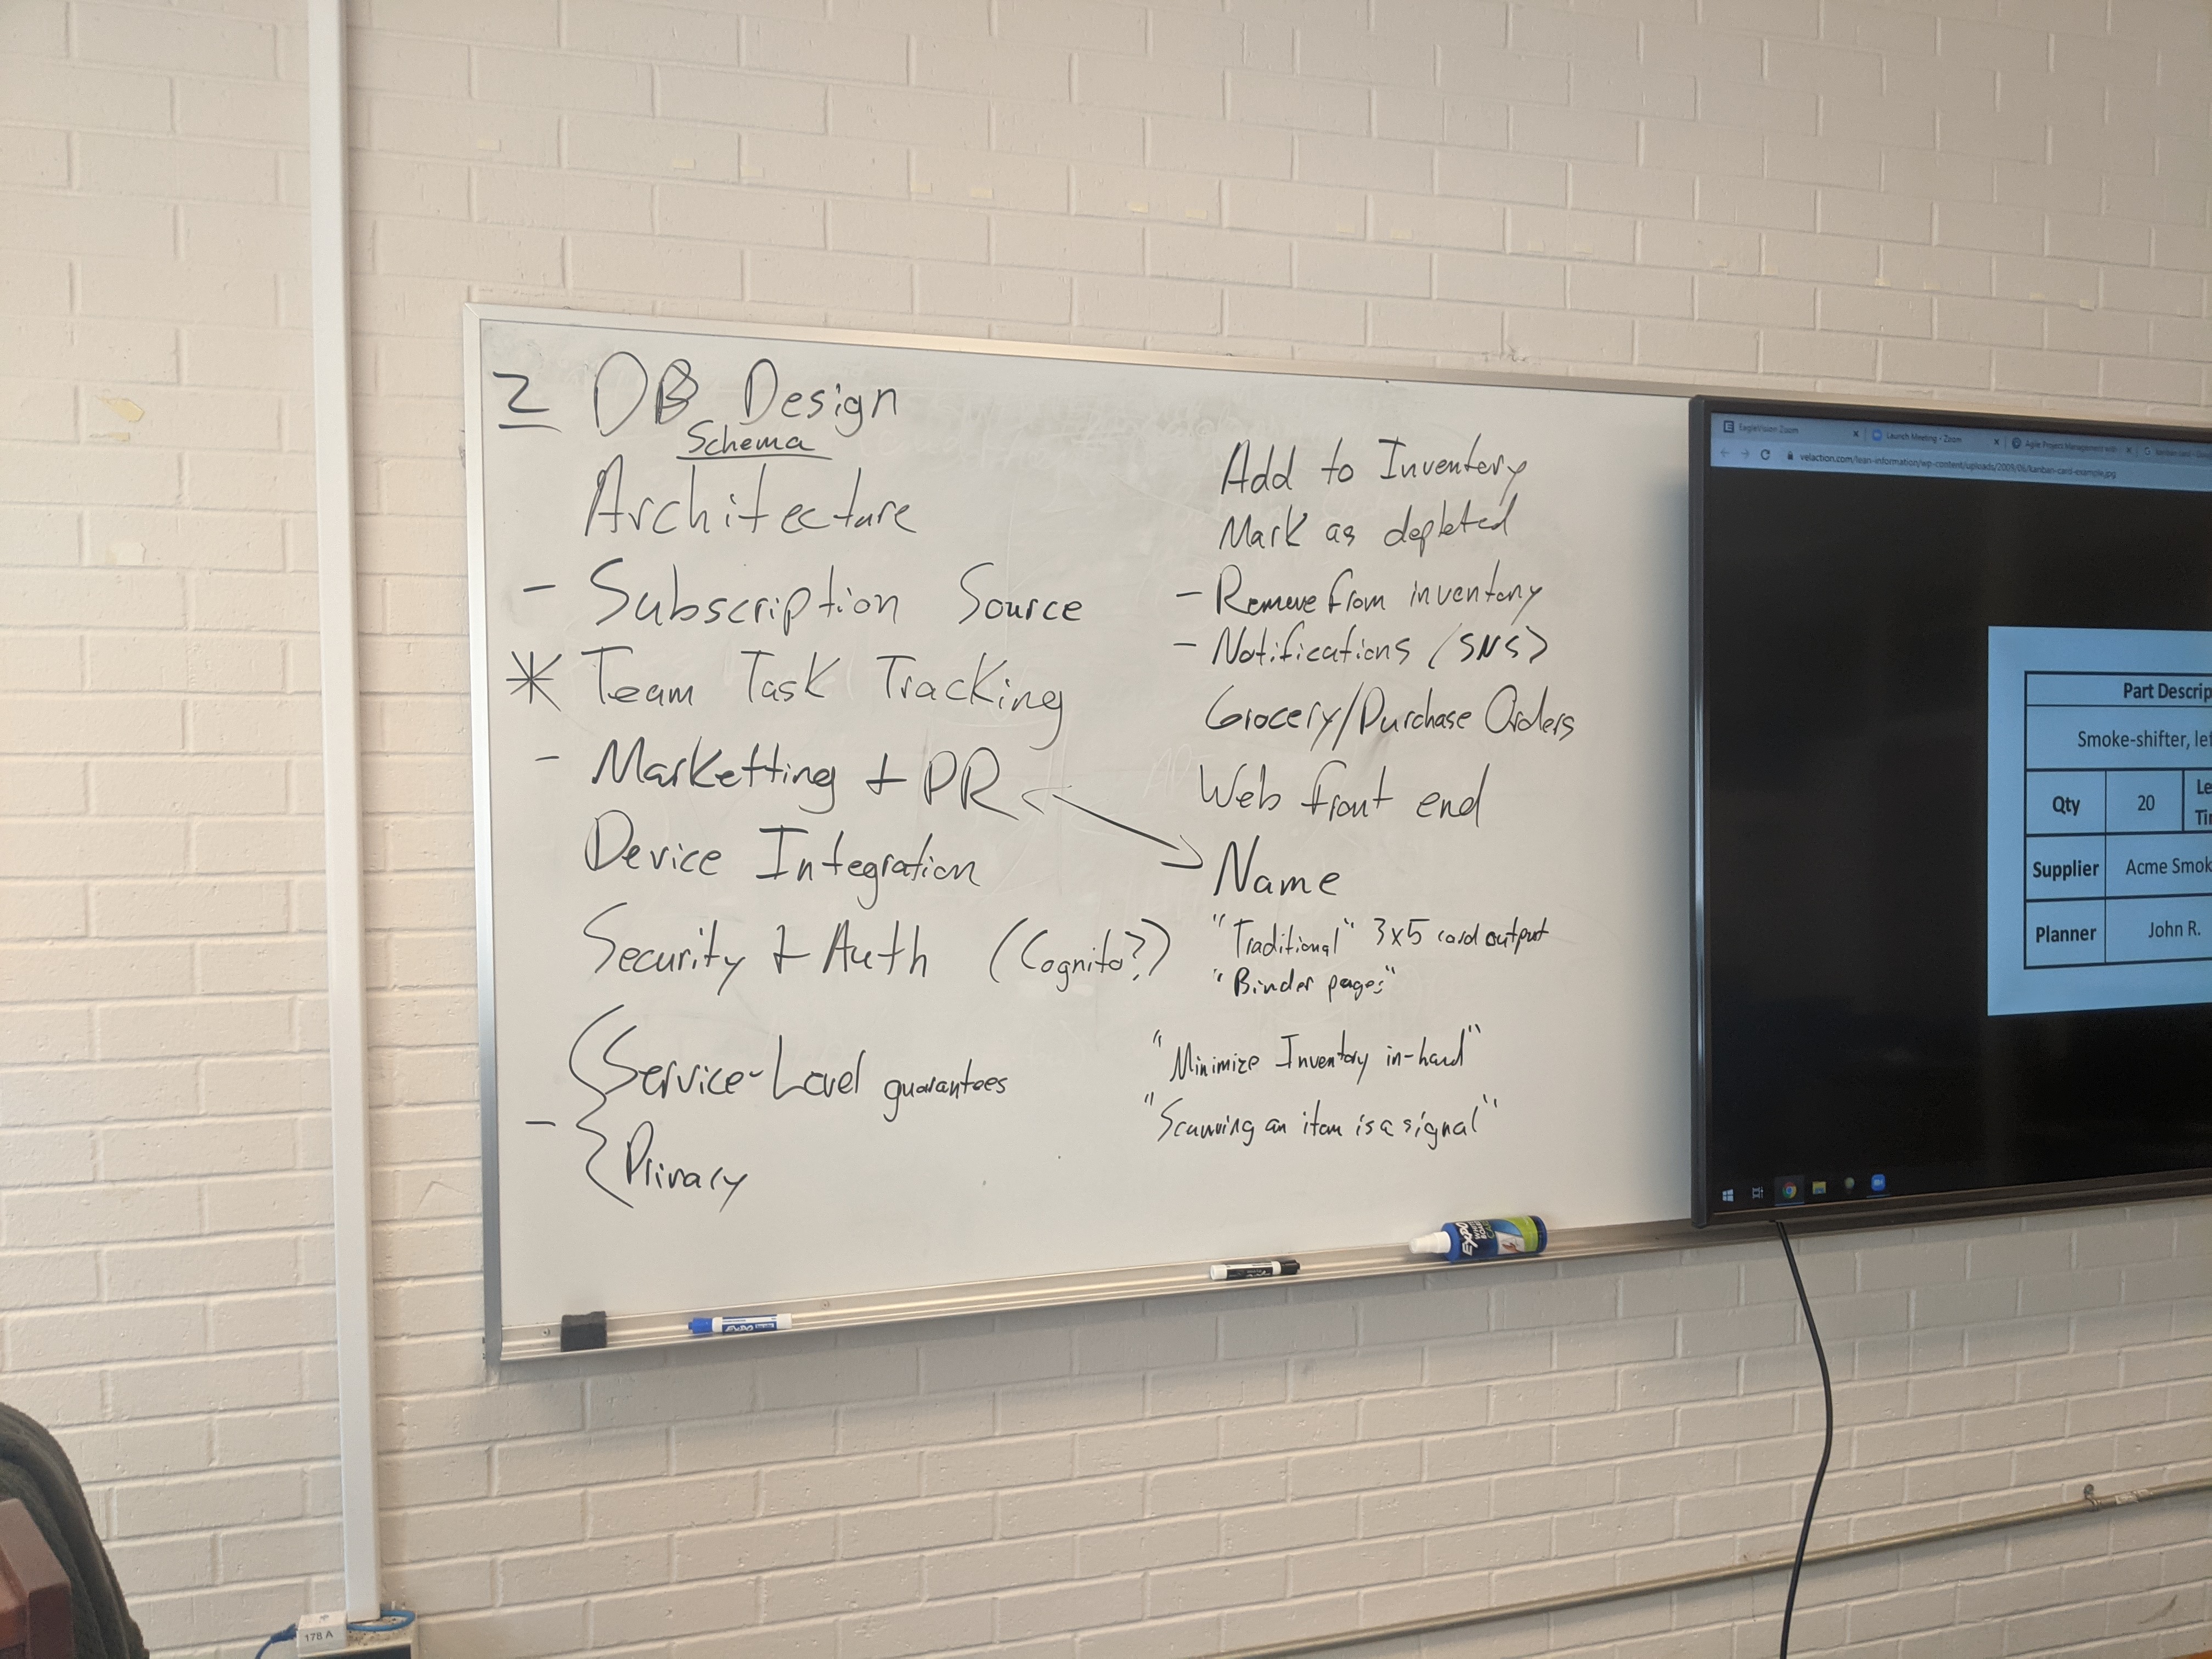 2 DB Design
Schema
Architecture
- Subscription Source
* Team Task Tracking
- Marketting + PR
Device Integration
Security + Auth (Cognito?)
Service-Level guarantees
- Privacy
Add to Inventory
Mark as depleted
- Remove from inventory
- Notifications (SNS)
Grocery/Purchase Orders
Web front end
Name
"Traditional" 3x5 card output
"Binder pages"
"Minimize Inventory in-hand"
"Scanning an item is a signal"
EagleVision Zoom
Launch Meeting - Zoom
Agile Project Management with
velaction.com/lean-information/wp-content/uploads/2009/06/kanban-card-example.jpg
Part Descrip
Smoke-shifter, lef
Qty 20 Le
Ti
Supplier Acme Smok
Planner John R.
EXPO
EXPO
178 A